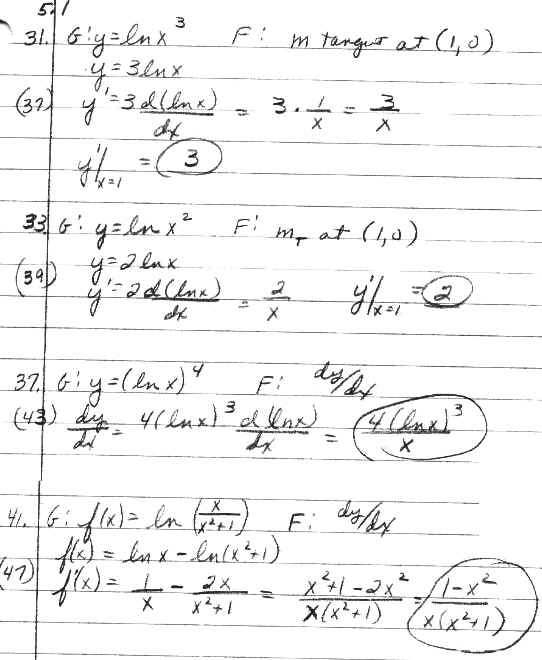 5.1
31. G: y = ln x³ F: m tangent at (1,0)
y = 3 ln x
(37) y' = 3 d(ln x)/dx = 3 · 1/x = 3/x
y'|x=1 = 3
33. G: y = ln x² F: m_T at (1,0)
y = 2 ln x
(39) y' = 2 d(ln x)/dx = 2/x y'|x=1 = 2
37. G: y = (ln x)⁴ F: dy/dx
(43) dy/dx = 4(ln x)³ d(ln x)/dx = 4(ln x)³/x
41. G: f(x) = ln (x/(x²+1)) F: dy/dx
f(x) = ln x - ln(x²+1)
(47) f'(x) = 1/x - 2x/(x²+1) = (x²+1-2x²)/(x(x²+1)) = (1-x²)/(x(x²+1))